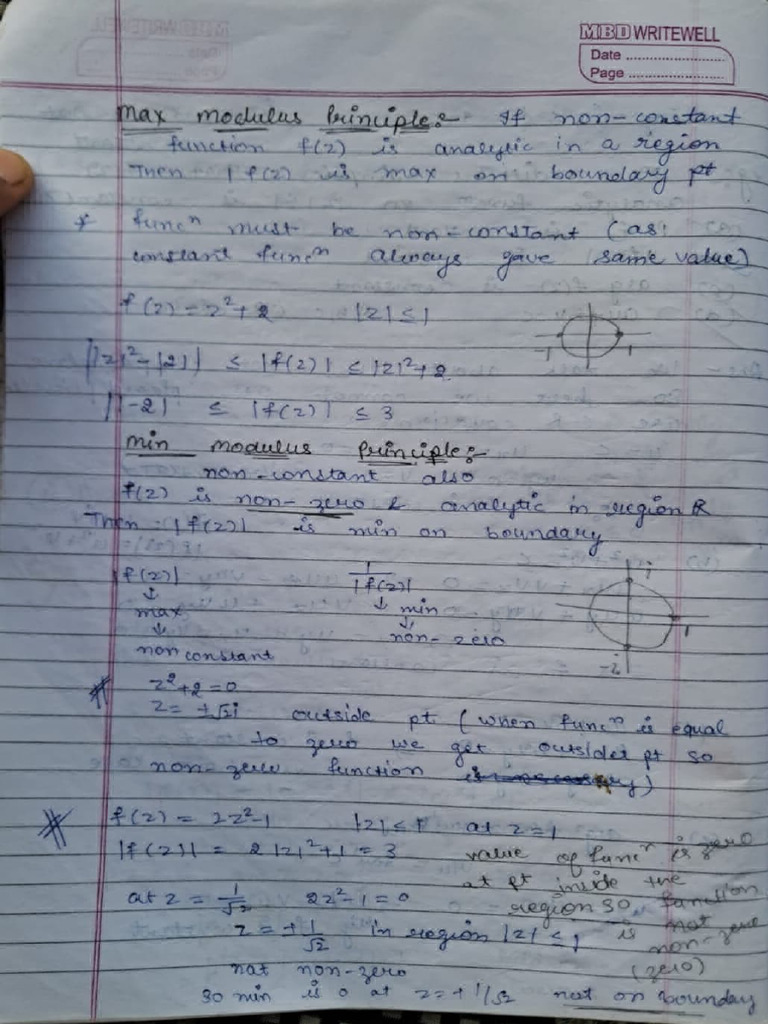 MBD WRITEWELL
Date
Page
max modulus Principle:- If non-constant
function f(z) is analytic in a region
Then |f(z) is max on boundary pt
* funcⁿ must be non-constant (as
constant funcⁿ always gave same value)
f(z) = z²+2 |z| ≤ 1
-1 1
||z|²-|2|| ≤ |f(z)| ≤ |z|²+2
|1-2| ≤ |f(z)| ≤ 3
min modulus Principle:-
non-constant also
f(z) is non-zero & analytic in region R
Then |f(z)| is min on boundary
|f(z)| 1/|f(z)| i
↓ ↓ min
max ↓ 1
↓ non-zero
non constant -i
* z²+2=0
z= ±√2i outside pt (when funcⁿ is equal
to zero we get outsider pt so
non-zero function
* f(z) = 2z²-1 |z| ≤ 1 at z=1
|f(z)| = 2|z|²+1 = 3 value of funcⁿ is zero
at pt inside the
at z = 1/√2 2z²-1=0 region so function
z = ±1/√2 in region |z| ≤ 1 is not
non-zero
not non-zero (zero)
so min is 0 at z=±1/√2 not on bounday